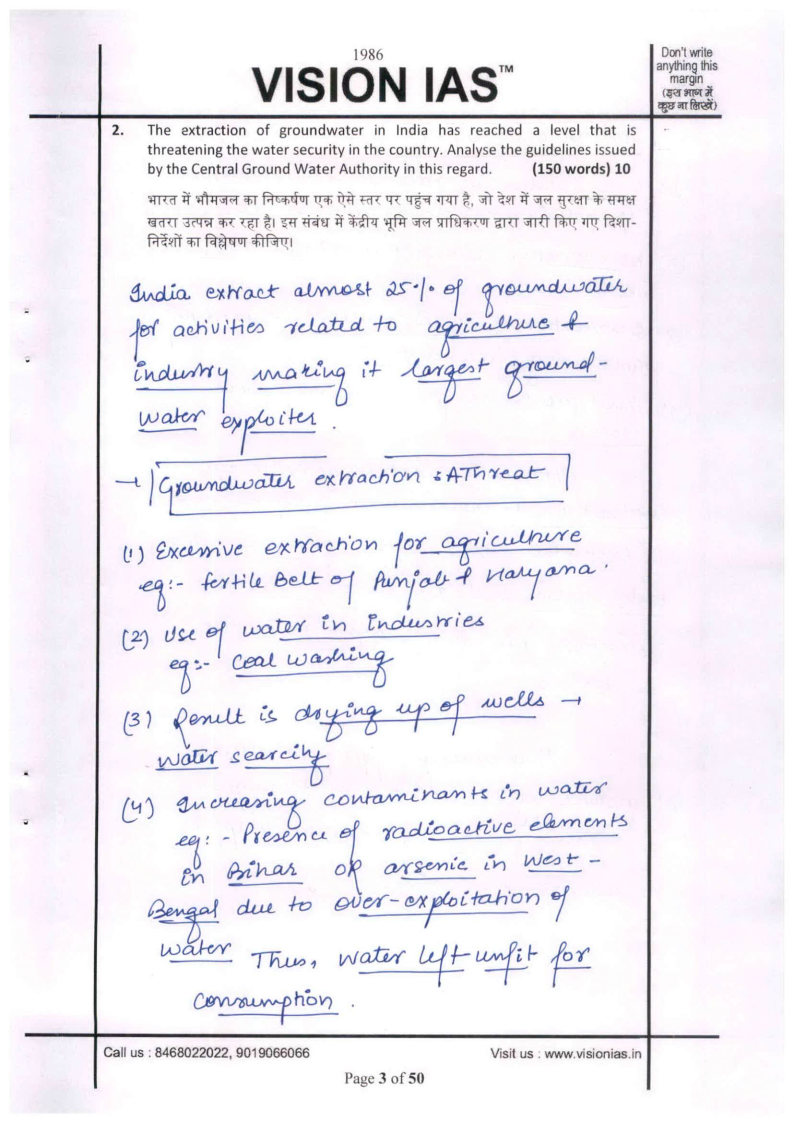 1986
VISION IAS™
Don't write
anything this
margin
(इस भाग में
कुछ ना लिखें)
2. The extraction of groundwater in India has reached a level that is
threatening the water security in the country. Analyse the guidelines issued
by the Central Ground Water Authority in this regard. (150 words) 10
भारत में भौमजल का निष्कर्षण एक ऐसे स्तर पर पहुंच गया है, जो देश में जल सुरक्षा के समक्ष
खतरा उत्पन्न कर रहा है। इस संबंध में केंद्रीय भूमि जल प्राधिकरण द्वारा जारी किए गए दिशा-
निर्देशों का विश्लेषण कीजिए।
India extract almost 25% of groundwater
for activities related to agriculture &
industry making it largest ground-
water exploiter.
→ Groundwater extraction : A Threat
(1) Excessive extraction for agriculture
eg:- fertile Belt of Punjab & Haryana.
(2) Use of water in Industries
eg:- Coal washing
(3) Result is drying up of wells →
water scarcity
(4) Increasing contaminants in water
eg:- Presence of radioactive elements
in Bihar or arsenic in West-
Bengal due to over-exploitation of
water Thus, water left unfit for
consumption.
Call us : 8468022022, 9019066066
Visit us : www.visionias.in
Page 3 of 50